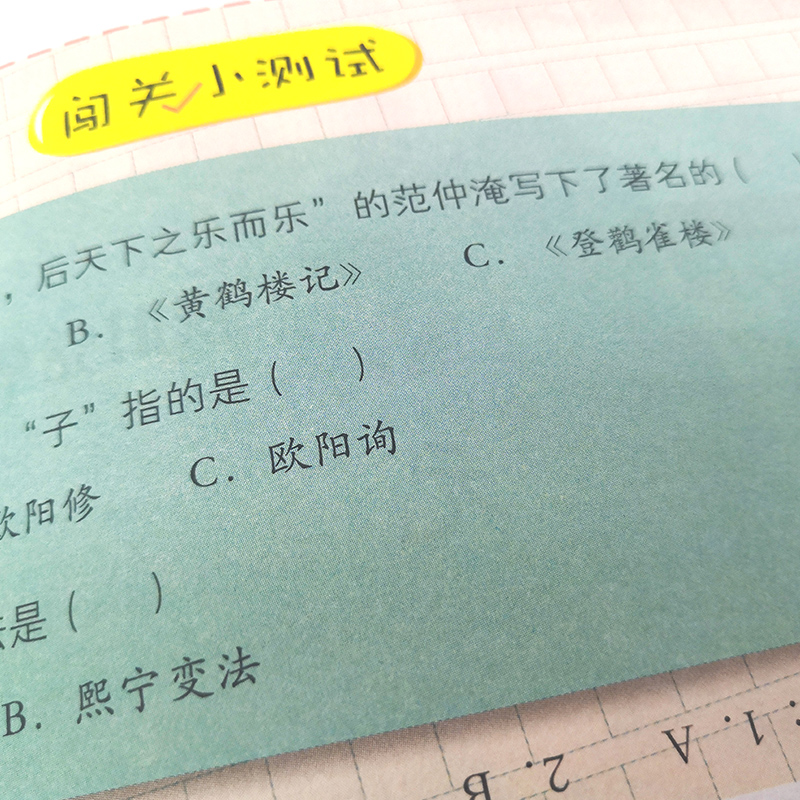 闯关小测试
，后天下之乐而乐”的范仲淹写下了著名的（ ）
B. 《黄鹤楼记》 C. 《登鹳雀楼》
“子”指的是（ ）
欧阳修 C. 欧阳询
法是（ ）
B. 熙宁变法
：1. A 2. B